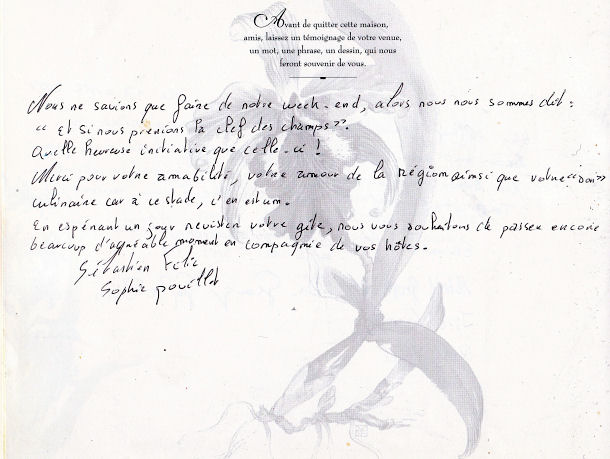 Avant de quitter cette maison,
amis, laissez un témoignage de votre venue,
un mot, une phrase, un dessin, qui nous
feront souvenir de vous.
Nous ne savions que faire de notre week-end, alors nous nous sommes dit :
" et si nous prenions la clef des champs ?".
Quelle heureuse initiative que celle-ci !
Merci pour votre amabilité, votre amour de la région ainsi que votre "don"
culinaire car à ce stade, c'en est un.
En espérant un jour revisiter votre gîte, nous vous souhaitons de passer encore
beaucoup d'agréable moment en compagnie de vos hôtes.
Sébastien
Sophie pouillot